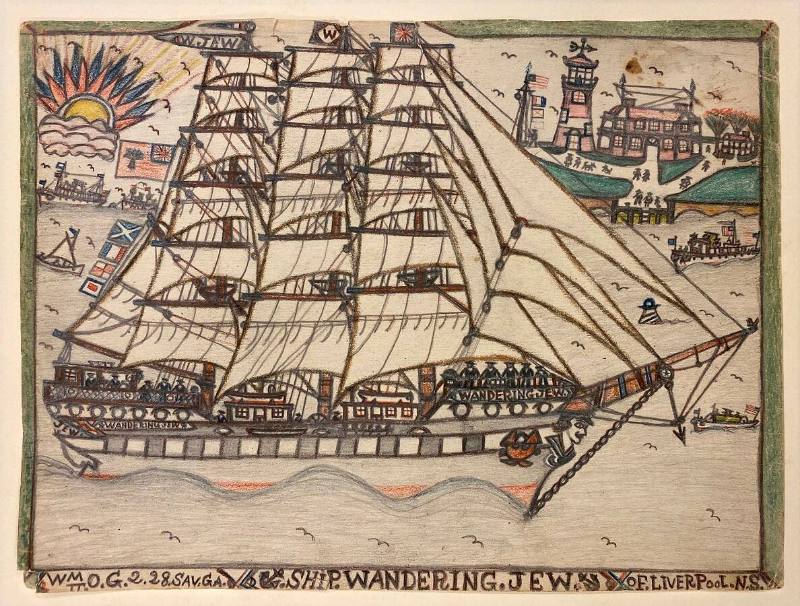 W. JEW
W
WANDERING. JEW.
WANDERING. JEW.
JEW
WM O.G. 2.28. SAV. GA. SHIP. WANDERING. JEW. OF. LIVERPOOL. N.S.